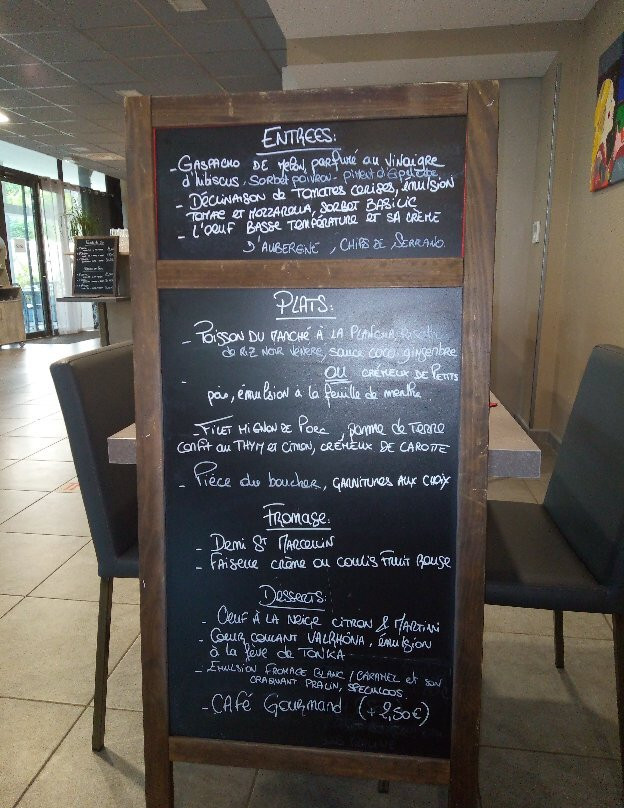 ENTREES:
- GASPACHO DE MELON, parfumé au vinaigre
d'hibiscus, sorbet poivron - piment d'Espelette
- DÉCLINAISON de TOMATES cerises, émulsion
TOMME ET MOZZARELLA, SORBET BASILIC
- L'OEUF BASSE TEMPÉRATURE ET SA CRÈME
D'AUBERGNE, CHIPS DE SERRANO.
PLATS:
- POISSON DU MARCHÉ À LA PLANCHA
de RIZ NOIR VENERE, sauce coco gingembre
- OU CRÉMEUX DE PETITS
pois, émulsion à la feuille de menthe
- FILET MIGNON DE PORC, pomme de terre
confit au THYM et citron, CRÉMEUX DE CAROTTE
- Pièce du boucher, GARNITURES AUX CHOIX
FROMAGE:
- Demi St MARCELLIN
- Faisselle crème ou coulis FRUIT ROUGE
DESSERTS:
- OEUF À LA NEIGE CITRON & MARTINI
- COEUR COULANT VALRHONA, émulsion
à la fève de TONKA
- EMULSION FROMAGE BLANC / CARAMEL et son
CRAQUANT PRALIN, SPECULOOS.
- CAFÉ GOURMAND (+2,50€)